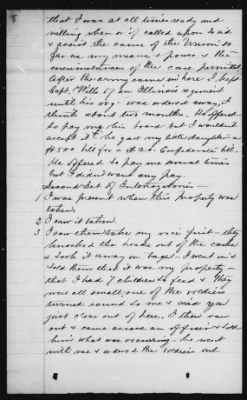 that I was at all times ready and
willing when or if called upon to aid
& assist the cause of the Union so
far as my means & power & the
circumstances of the case permitted
After the army came in here I kept
Capt. Mills of an Illinois regiment
until his reg. was ordered away, I
think about two months. He offered
to pay me his board but I wouldn't
accept it. he gave my little daughter a
$500 bill for a $20. Confederate bill.
He offered to pay me several times
but I didn't want any pay.
Second Set of Interrogatories—
1 I was present when this property was
taken.
2 I saw it taken.
3 I saw them take my rice first. they
knocked the heads out of the casks
& took it away in bags. I went in &
told them that it was my property—
that I had 7 children to feed & they
were all small; one of the soldiers
turned round to me & said you
just clear out of here. I then went
out & came across an officer & told
him what was occurring— he went
with me & ordered the soldiers out